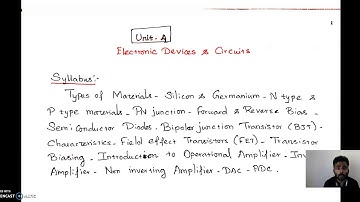 Unit-4
Electronic Devices & Circuits
Syllabus:-
Types of Materials - Silicon & Germanium - N type &
P type materials - PN junction - Forward & Reverse Bias -
Semi Conductor Diodes - Bipolar junction Transistor (BJT) -
Characteristics - Field effect Transistors (FET) - Transistor
Biasing - Introduction to Operational Amplifier - Inv
Amplifier - Non inversing Amplifier - DAC - ADC.